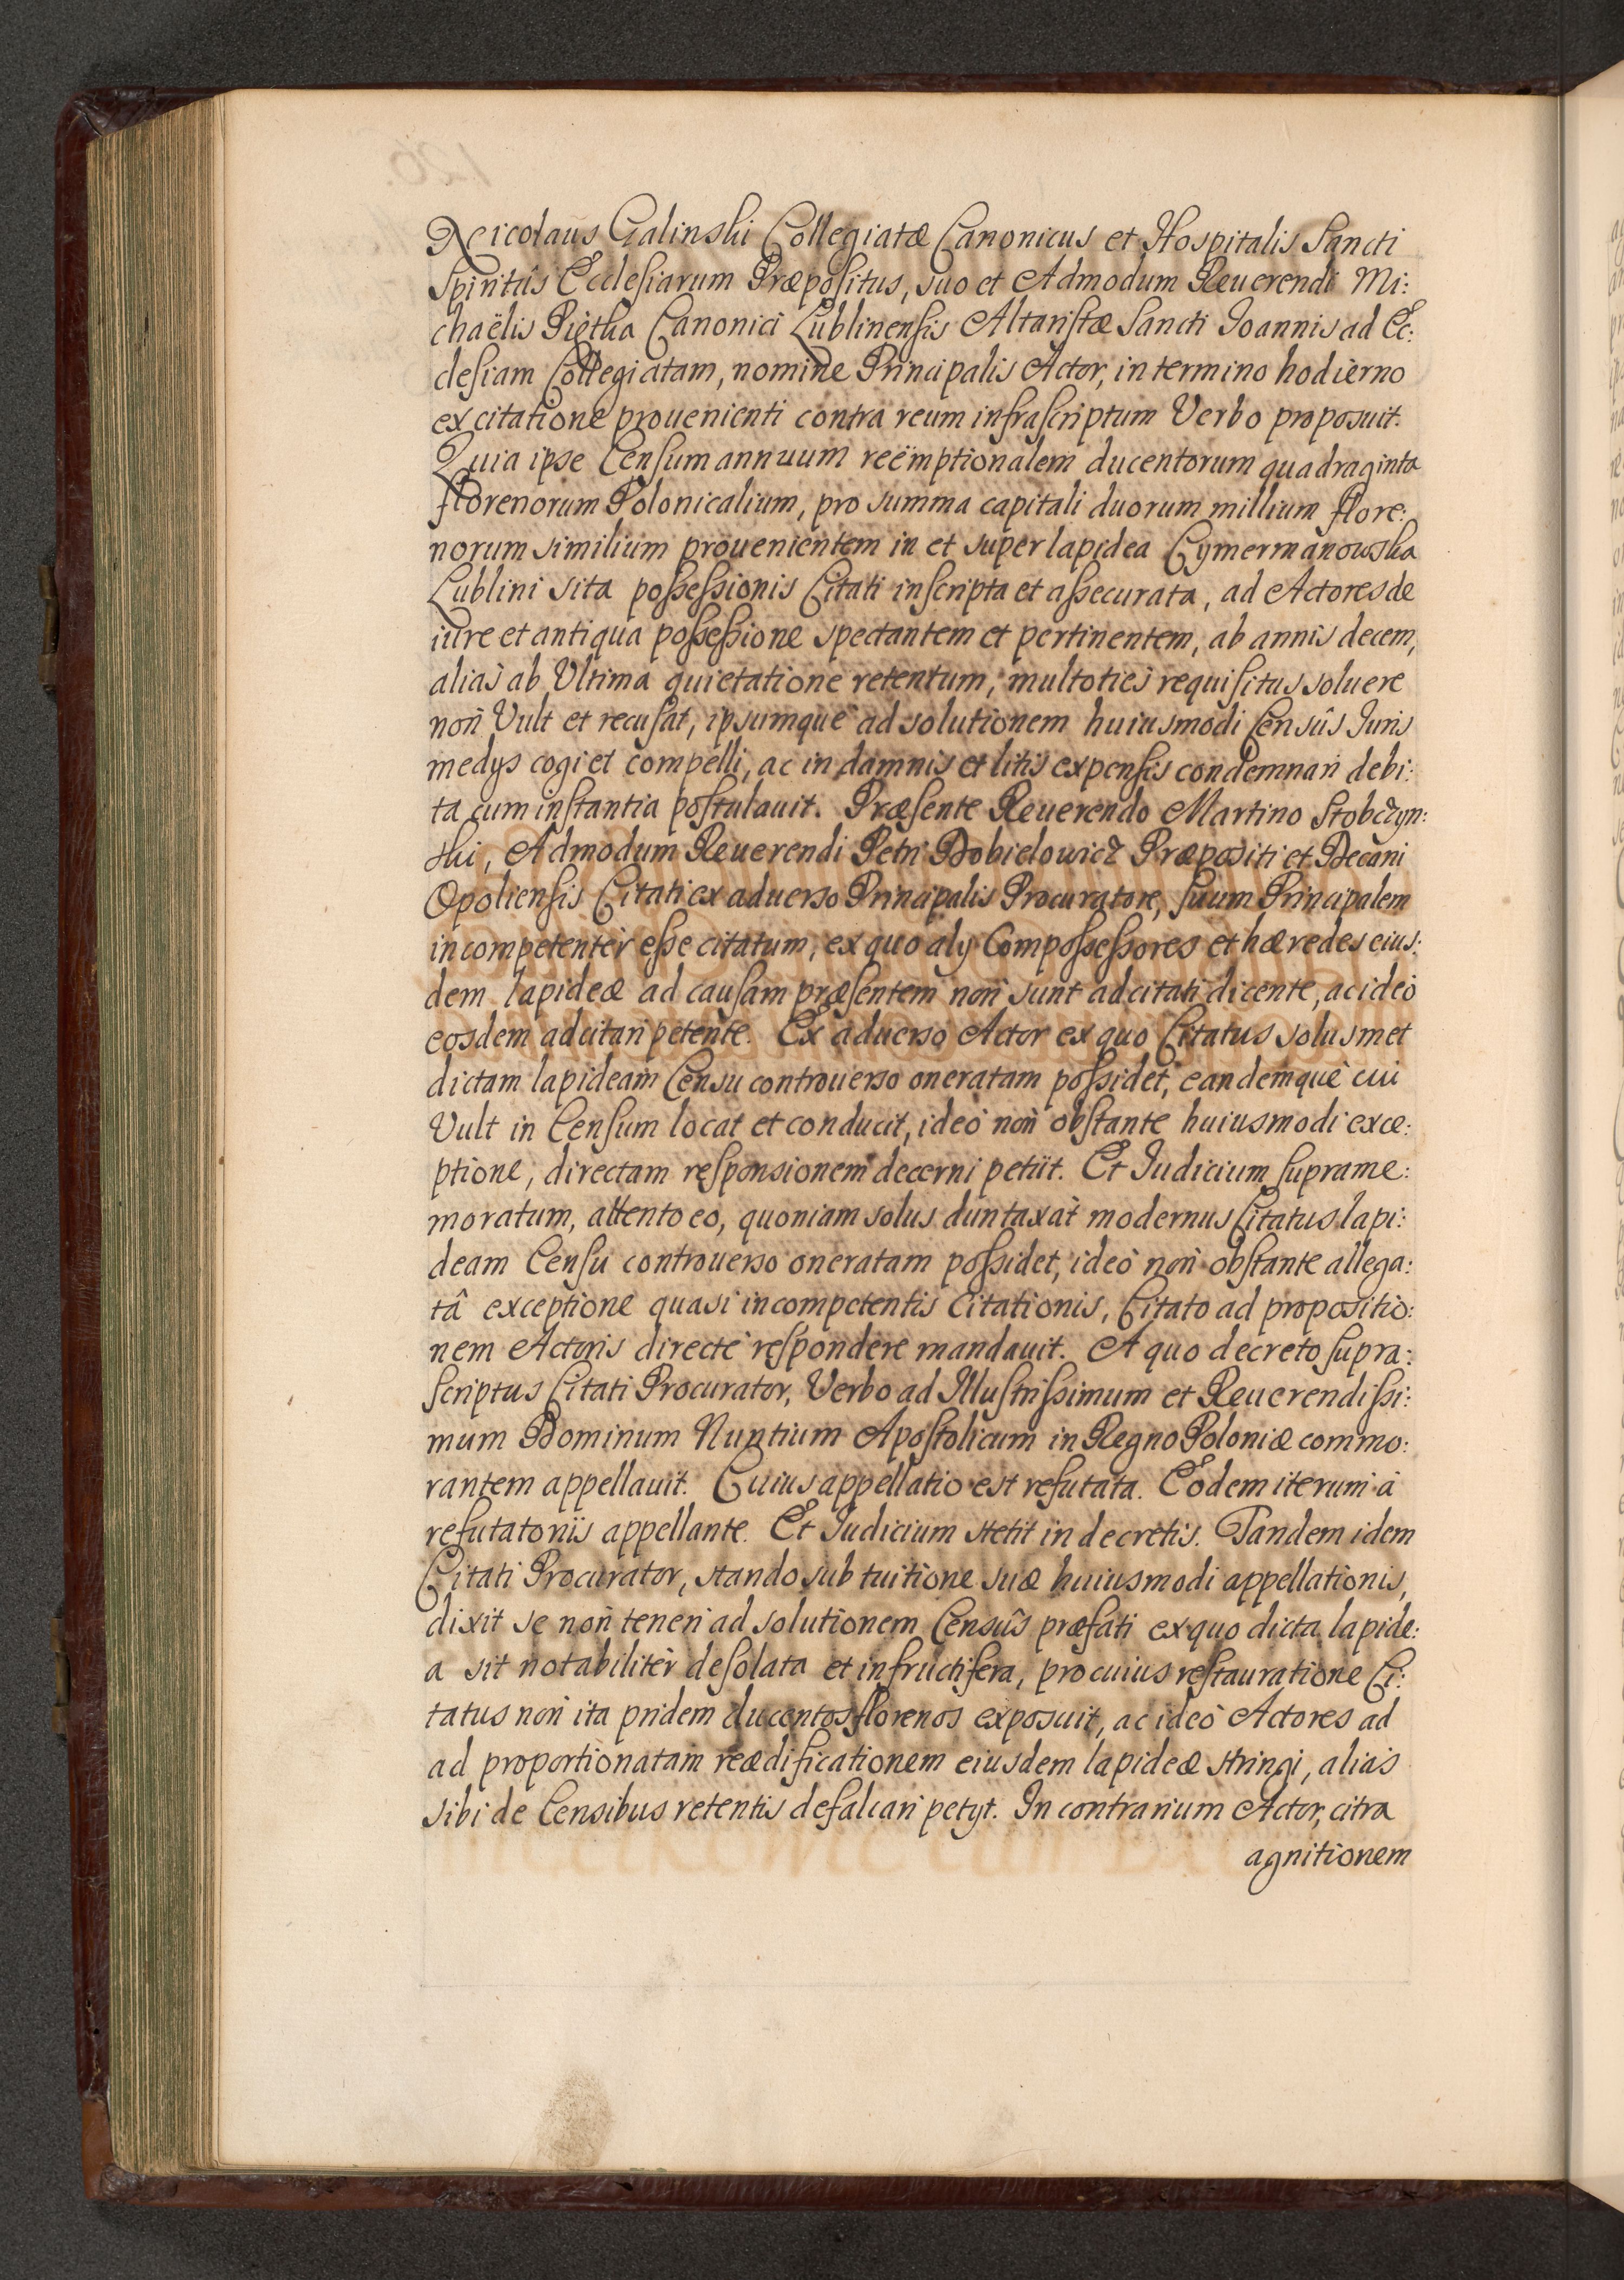 Nicolaus Galinski Collegiatæ Canonicus et Hospitalis Sancti
Spiritûs Ecclesiarum Præpositus, suo et Admodum Reuerendi Mi:
chaëlis Piętka Canonici Lublinensis Altaristæ Sancti Joannis ad Ec:
clesiam Collegiatam, nomine Principalis Actor, in termino hodierno
ex citatione prouenienti contra reum infrascriptum Verbo proposuit.
Quia ipse Censum annuum reëmptionalem ducentorum quadraginta
florenorum Polonicalium, pro summa capitali duorum millium flore:
norum similium prouenientem in et super lapidea Cymermanowska
Lublini sita possessionis Citati inscripta et assecurata, ad Actores de
iure et antiqua possessione spectantem et pertinentem, ab annis decem,
aliàs ab Vltima quietatione retentum, multoties requisitus soluere
non Vult et recusat, ipsumque ad solutionem huiusmodi Censûs Juris
medys cogi et compelli, ac in damnis et litis expensis condemnari debi:
ta cum instantia postulauit. Præsente Reuerendo Martino Stobczyn:
ski, Admodum Reuerendi Petri Dobielowicz Præpositi et Decani
Opoliensis Citati ex aduerso Principalis Procuratore, suum Principalem
incompetentèr esse citatum, ex quo aly Compossessores et hæredes eius:
dem lapideæ ad causam præsentem non sunt adcitati dicente, ac ideò
eosdem adcitari petente. Ex aduerso Actor ex quo Citatus solusmet
dictam lapideam Censu controuerso oneratam possidet, eandemquè cui
Vult in Censum locat et conducit, ideò non obstante huiusmodi exce:
ptione, directam responsionem decerni petiit. Et Judicium suprame:
moratum, attento eo, quoniam solus duntaxàt modernus Citatus lapi:
deam Censu controuerso oneratam possidet, ideò non obstante allega:
tâ exceptione quasi incompetentis Citationis, Citato ad propositio:
nem Actoris directè respondere mandauit. A quo decreto supra:
scriptus Citati Procurator, Verbo ad Illustrissimum et Reuerendissi:
mum Dominum Nuntium Apostolicum in Regno Poloniæ commo:
rantem appellauit. Cuius appellatio est refutata. Eodem iterum à
refutatoriis appellante. Et Judicium stetit in decretis. Tandem idem
Citati Procurator, stando sub tuitione suæ huiusmodi appellationis,
dixit se non teneri ad solutionem Censûs præfati ex quo dicta lapide:
a sit notabilitèr desolata et infructifera, pro cuius restauratione Ci:
tatus non ita pridem ducentos florenos exposuit, ac ideò Actores ad
ad proportionatam reædificationem eiusdem lapideæ stringi, aliàs
sibi de Censibus retentis defalcari petyt. In contrarium Actor, citra
agnitionem